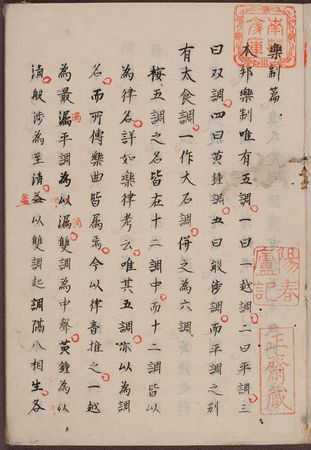 南葵文庫
樂制篇
本邦樂制唯有五調一曰一越調二曰平調三
曰双調四曰黃鐘調五曰般涉調而平調之別
有太食調一作大石調併之為六調
按五調之名皆在十二調中而十二調皆以
為律名詳如樂律考云唯其五調亦以為調
名而所傳樂曲皆属焉今以律推之一越
為最漏平調為以漏雙調為中聲黃鐘為以
濁
濁
清般涉為至清益以雙調起調隔八相生各
陽春廬記
正齋蔵